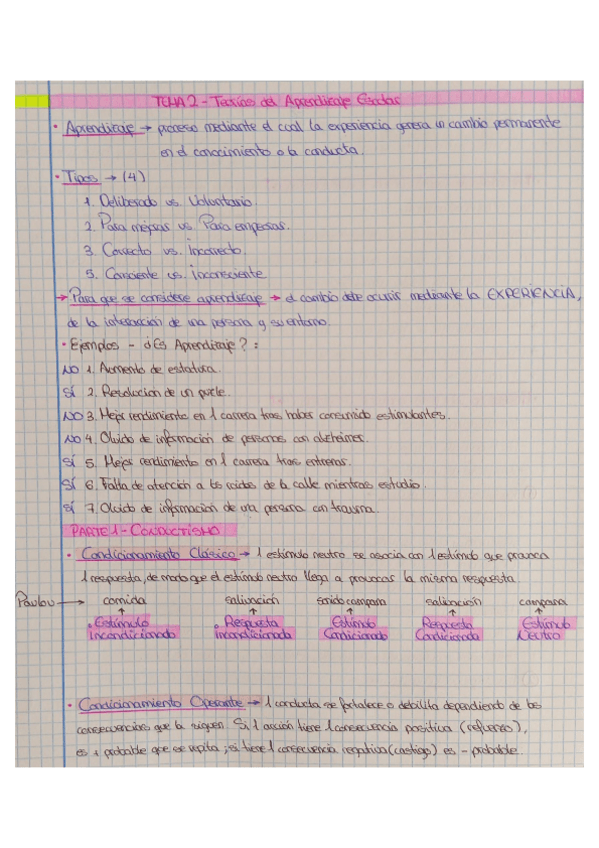 TEMA 2 - Teorías del Aprendizaje Escolar
· Aprendizaje → proceso mediante el cual la experiencia genera un cambio permanente
en el conocimiento o la conducta.
· Tipos → (4)
1. Deliberado vs. Voluntario.
2. Para mejorar vs. Para empeorar.
3. Correcto vs. Incorrecto.
5. Consciente vs. Inconsciente
→ Para que se considere aprendizaje → el cambio debe ocurrir mediante la EXPERIENCIA,
de la interacción de una persona y su entorno.
· Ejemplos - ¿Es Aprendizaje? :
NO 1. Aumento de estatura.
SÍ 2. Resolución de un puzle.
NO 3. Mejor rendimiento en 1 carrera tras haber consumido estimulantes.
NO 4. Olvido de información de personas con alzheimer.
SÍ 5. Mejor rendimiento en 1 carrera tras entrenar.
SÍ 6. Falta de atención a los ruidos de la calle mientras estudio.
SÍ 7. Olvido de información de una persona con trauma.
PARTE 1 - CONDUCTISMO
· Condicionamiento Clásico → 1 estímulo neutro se asocia con 1 estímulo que provoca
1 respuesta, de modo que el estímulo neutro llega a provocar la misma respuesta.
Paulov → comida salivación sonido campana salivación campana
· Estímulo Incondicionado · Respuesta Incondicionada Estímulo Condicionado Respuesta Condicionada Estímulo Neutro
· Condicionamiento Operante → 1 conducta se fortalece o debilita dependiendo de las
consecuencias que la siguen. Si 1 acción tiene 1 consecuencia positiva (refuerzo),
es + probable que se repita; si tiene 1 consecuencia negativa (castigo) es - probable.